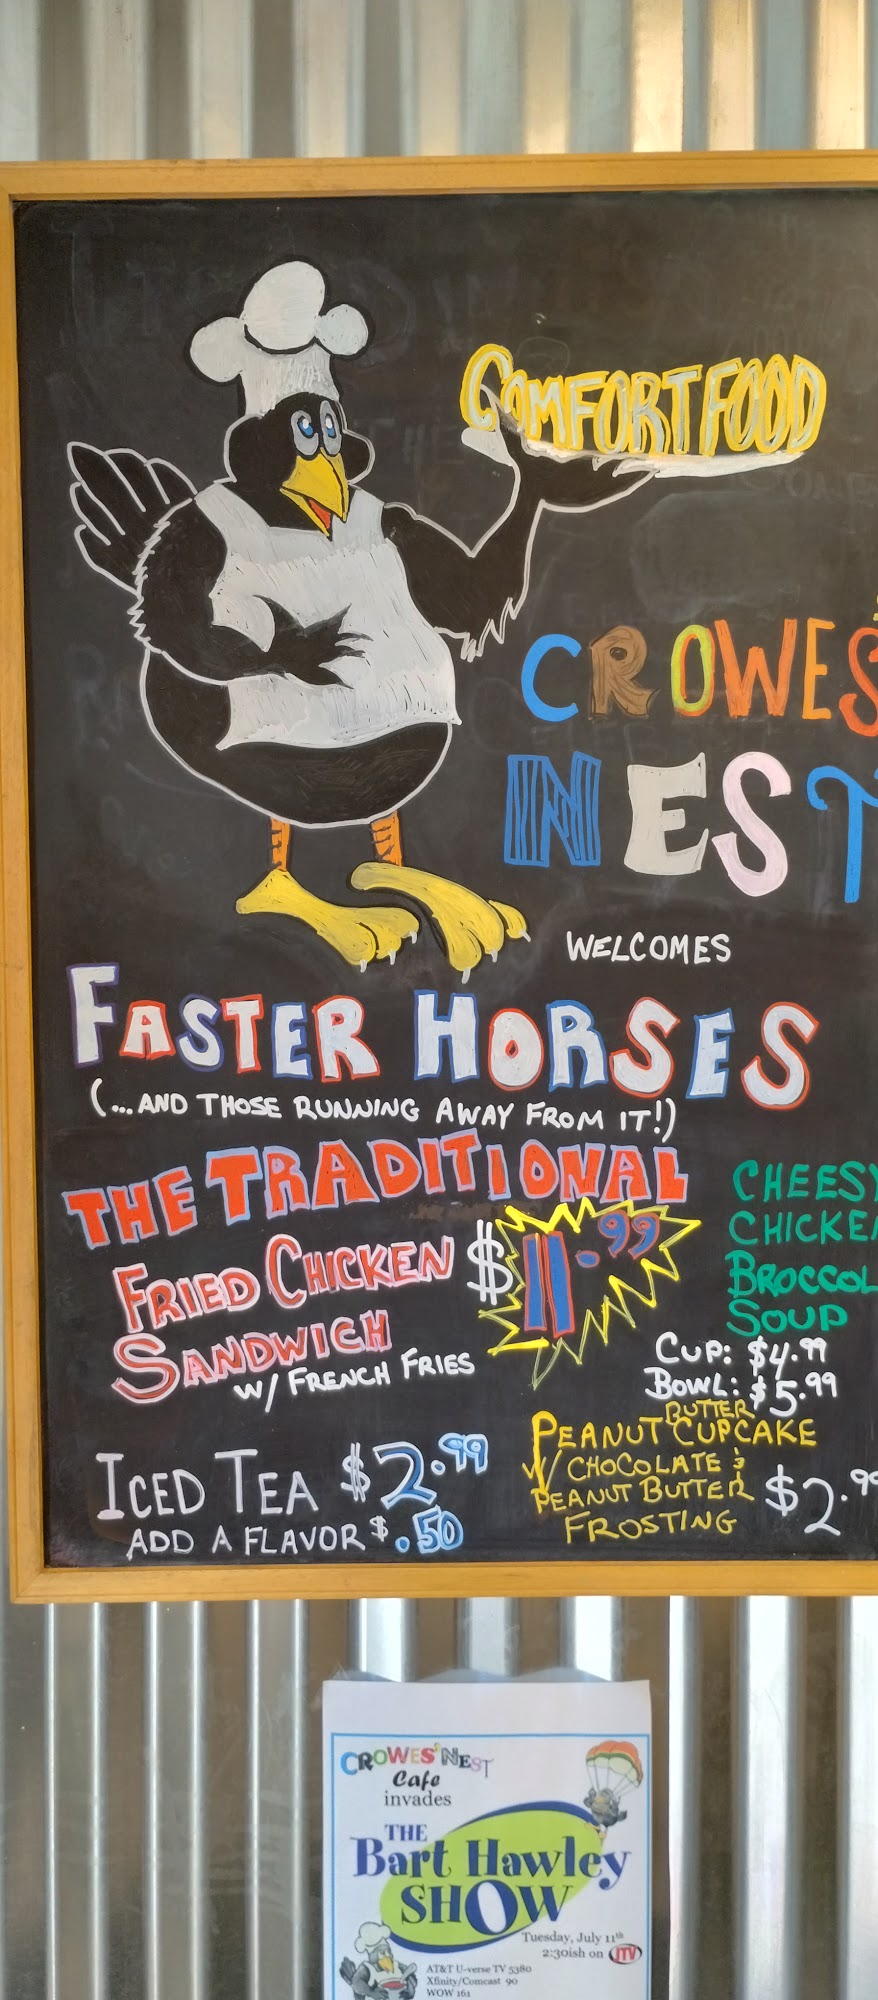 COMFORT FOOD
CROWES'
NEST
WELCOMES
FASTER HORSES
(...AND THOSE RUNNING AWAY FROM IT!)
THE TRADITIONAL
FRIED CHICKEN
SANDWICH
W/ FRENCH FRIES
$11.99
CHEESY
CHICKEN
BROCCOL
SOUP
CUP: $4.99
BOWL: $5.99
ICED TEA $2.99
ADD A FLAVOR $.50
PEANUT BUTTER CUPCAKE
W/ CHOCOLATE &
PEANUT BUTTER
FROSTING
$2.99
CROWES' NEST
Cafe
invades
THE
Bart Hawley
SHOW
Tuesday, July 11th
2:30ish on JTV
AT&T U-verse TV 5380
Xfinity/Comcast 90
WOW 161